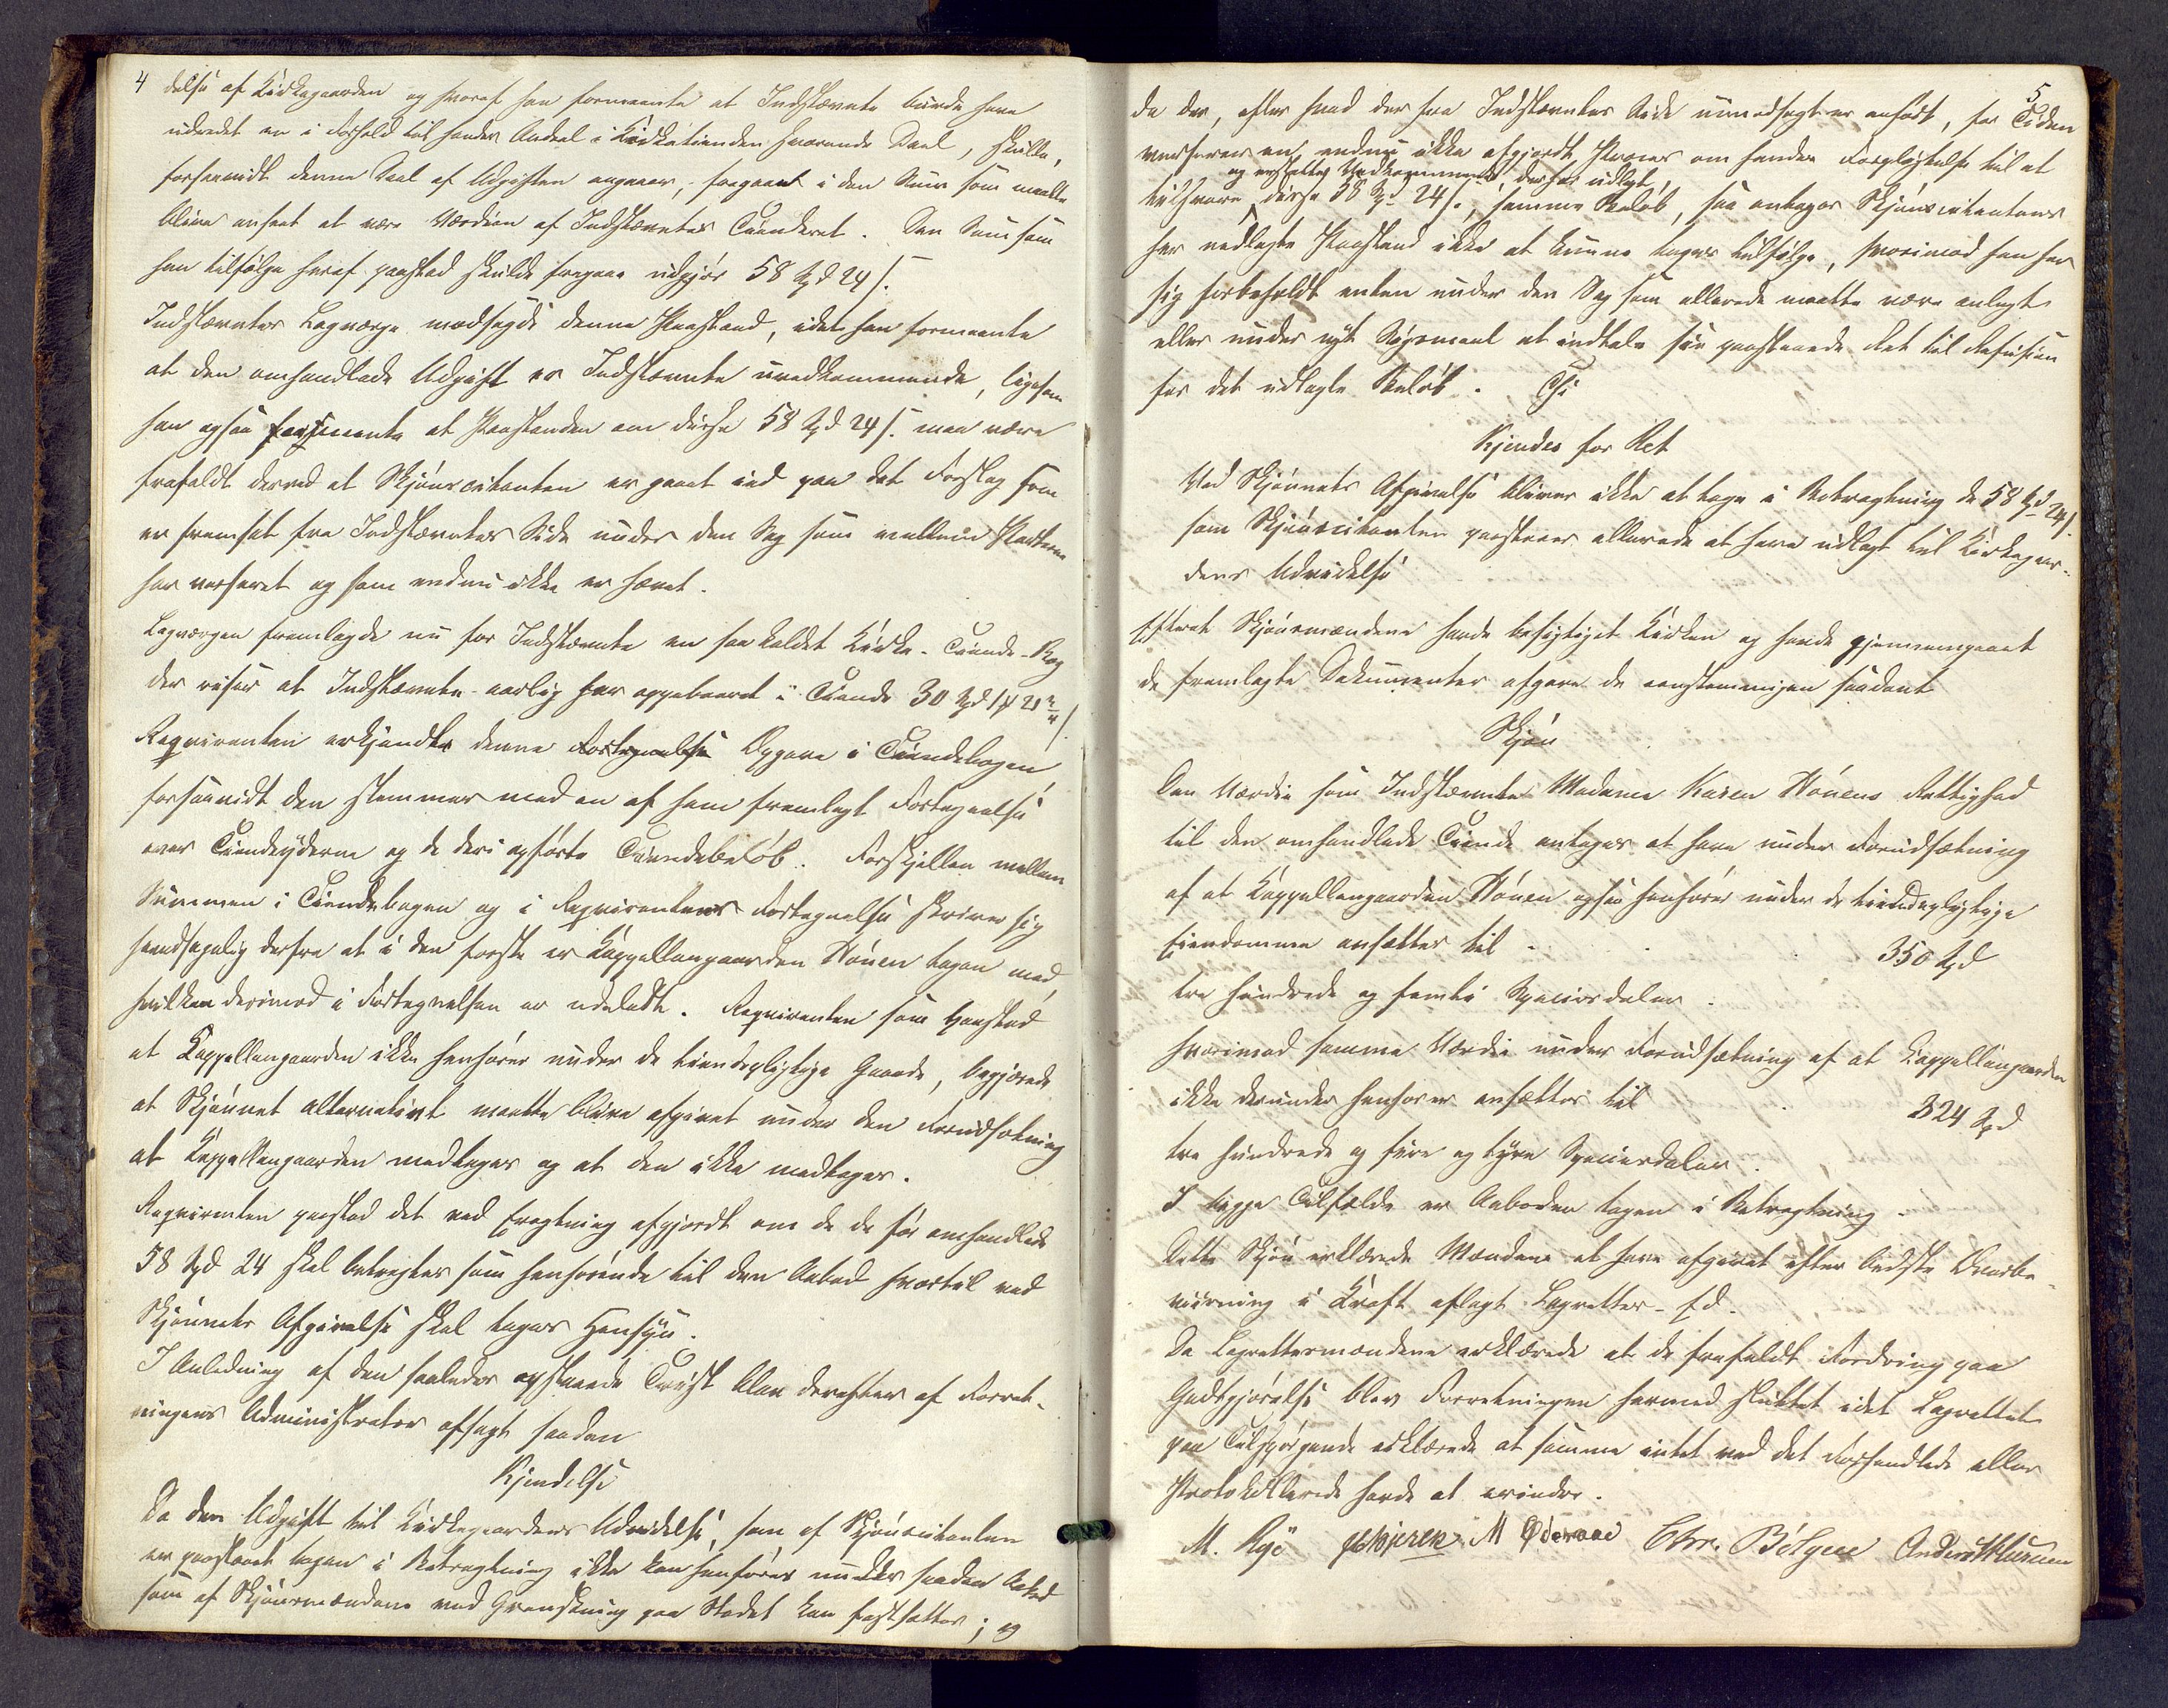 4
delse af Kirkegaarden og hvoraf han formeente at Indstævnte burde have
udredet en i Forhold til hendes Andeel i Kirketienden svarende Deel, skulle,
forsaavidt denne Deel af Udgiften angaaer, fragaaes i den Sum som maatte
blive anseet at være Værdien af Indstævntes Tienderet. Den Sum som
han tilfølge heraf paastod skulde fragaae udgjør 58 Spd 24 s.
Indstævntes Laugværge modsagde denne Paastand, idet han formeente
at den omhandlede Udgift er Indstævnte uvedkommende, ligesom
han ogsaa formeente at Paastanden om disse 58 Spd 24 s. maa være
frafaldt derved at Skjønscitanten er gaaet ind paa det Forslag som
er fremsat fra Indstævntes Side under den Sag som mellem Parterne
har verseret og som endnu ikke er hævet.
Laugværgen fremlagde nu for Indstævnte en saa kaldet Kirke-Tiende-Bog
der viser at Indstævnte aarlig har oppebaaret i Tiende 30 Spd
Requirenten erkjendte denne Opgave i Tiendebogen,
forsaavidt den stemmer med en af ham fremlagt Fortegnelse
over Tiendeyderne og de deri opførte Tiendebeløb. Forskjellen mellem
Summen i Tiendebogen og i Requirentens Fortegnelse skriver sig
hovedsagelig derfra at i den første er Kappellangaarden Hønen tagen med,
hvilken derimod i Fortegnelsen er udeladt. Requirenten som paastod
at Kappellangaarden ikke henhører under de tiendepligtige Gaarde, begjærede
at Skjønnet alternativt maatte blive afgivet under den Forudsætning
at Kappellangaarden medtages og at den ikke medtages.
Requirenten paastod det ved Eragtning afgjordt om de før omhandlede
58 Spd 24 skal betragtes som henhørende til den Aabod hvortil ved
Skjønnets Afgivelse skal tages Hensyn.
I Anledning af den saaledes opstaaede Tvist blev derefter af Forret-
ningens Administrator afsagt saadan
Kjendelse
Da den Udgift til Kirkegaardens Udvidelse, som af Skjønscitanten
er paastaaet tagen i Betragtning ikke kan henføres under saadan Aabod
som af Skjønsmændene ved Granskning paa Stedet kan fastsættes; og
5
da der, efter hvad der fra Indstævntes Side uimodsagt er anført, for Tiden
verserer en endnu ikke afgjordt Proces om hendes Forpligtelse til at
og erstatte Vedkommende, der har udlagt,
tilsvare disse 58 Spd 24 s., samme Beløb, saa antages Skjønscitantens
her nedlagte Paastand ikke at kunne tages tilfølge, hvorimod han har
sig forbeholdt enten under den Sag som allerede maatte være anlagt
eller under nyt Søgsmaal at indtale sin paastaaede Ret til Refusion
for det udlagte Beløb. Thi
Kjendes for Ret
Ved Skjønnets Afgivelse bliver ikke at tage i Betragtning de 58 Spd 24 s.
som Skjønscitanten paastaaer allerede at have udlagt til Kirkegaar-
dens Udvidelse
Efterat Skjønsmændene havde besigtiget Kirken og havde gjennemgaaet
de fremlagte Dokumenter afgave de eenstemmigen saadant
Skjøn
Den Værdie som Indstævnte Madame Karen Hønens Rettighed
til den omhandlede Tiende antages at have under Forudsætning
af at Kappellangaarden Hønen ogsaa henhører under de tiendepligtige
Eiendomme ansættes til - 350 Spd
tre hundrede og femti Speciesdaler.
hvorimod samme Værdie under Forudsætning af at Kappellangaarden
ikke derunder henhører ansættes til 324 Spd
tre hundrede og fire og tyve Speciesdaler.
I begge Tilfælde er Aaboden tagen i Betragtning.
Dette Skjøn erklærede Mændene at have afgivet efter bedste Overbe-
viisning i Kraft aflagt Lagrettes-Ed.
Da Lagrettesmændene erklærede at de frafaldt Fordring paa
Godtgjørelse blev Forretningen hermed sluttet idet Lagrettet
paa Tilspørgende erklærede at samme intet ved det Forhandlede eller
Protokollerede havde at erindre.
M. Rye M Chr. Bølgen Anders